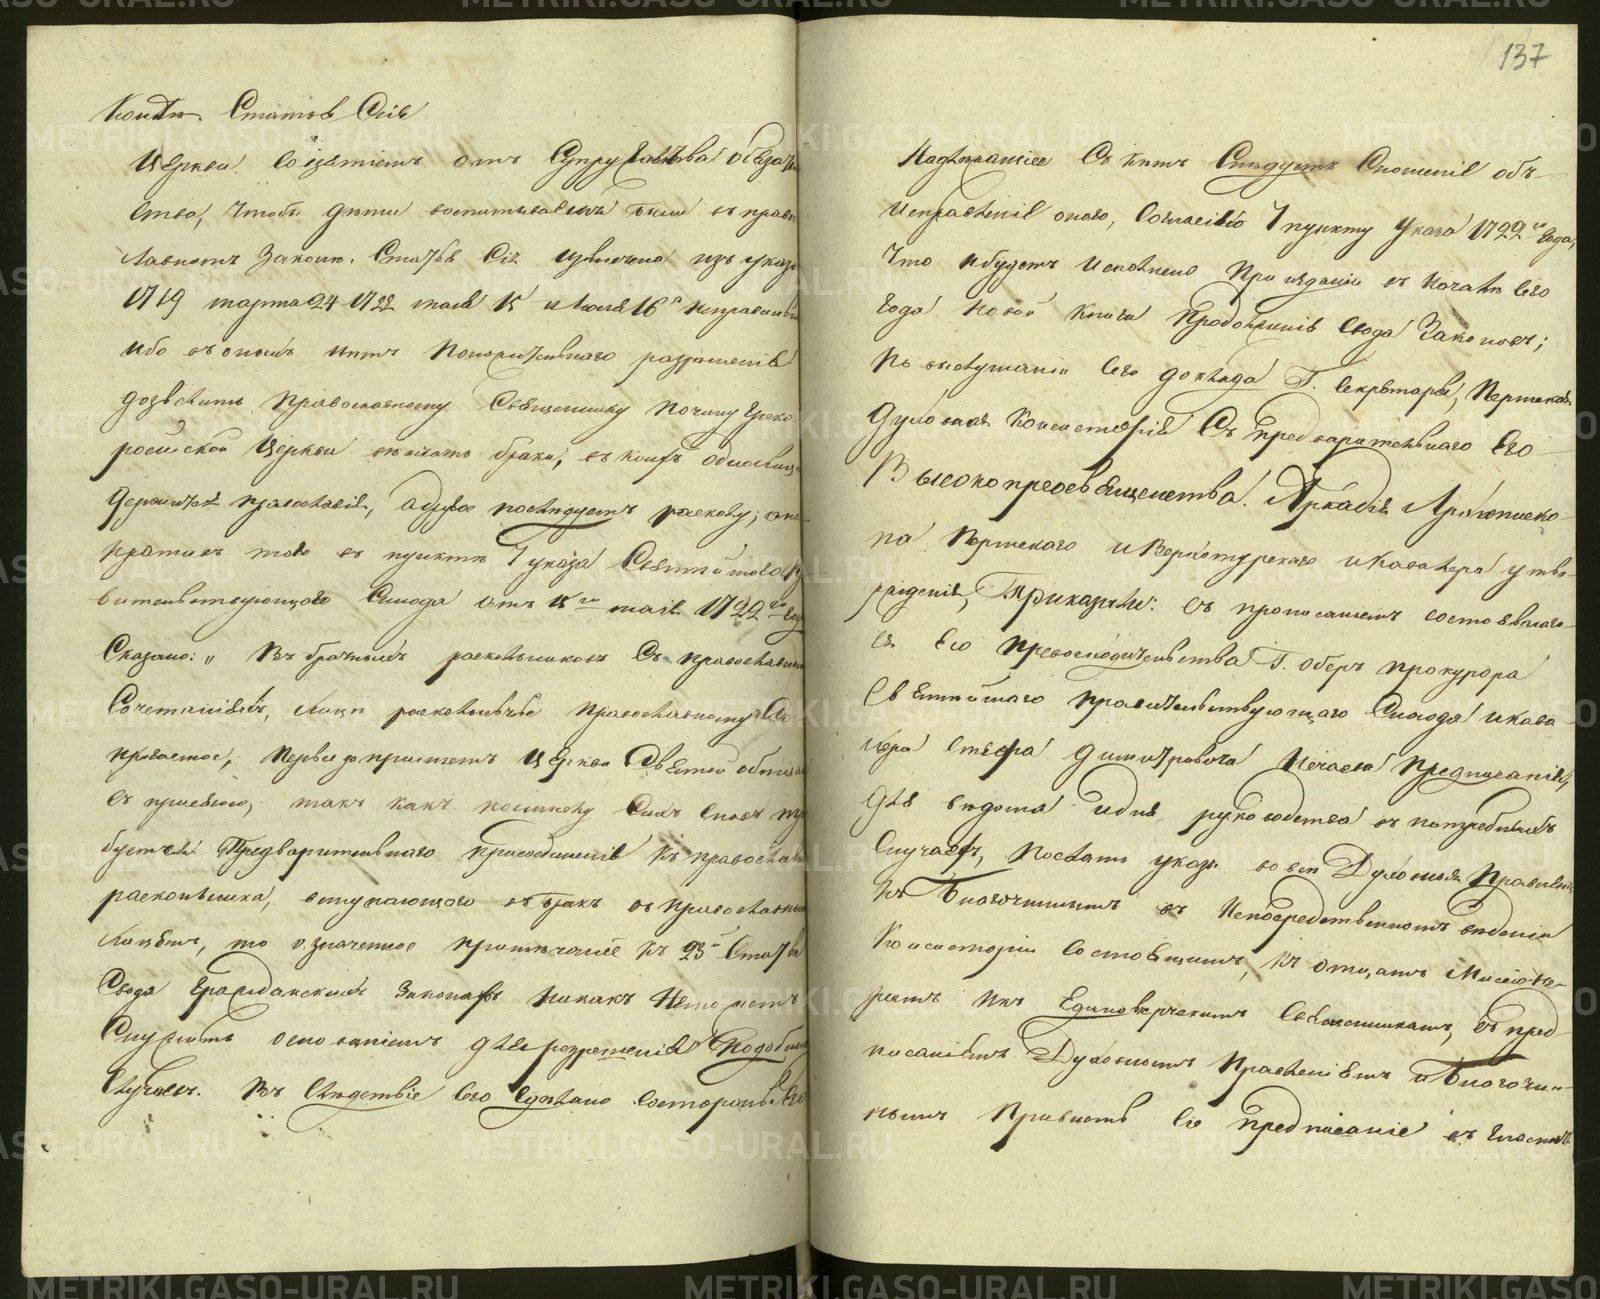 Статья Сія
Церкви. со взятіемъ отъ Супружества обяза
ства, чтобы дѣти воспитываемы были въ право
славномъ Законѣ. Статья Сія извлечена изъ указо
1719 марта 24 1722 маія 15 и Іюля 16 неправильно
ибо въ оныхъ нѣтъ положительнаго разрѣшенія
дозволить православному Священнику по чину Греко
россійской Церкви вѣнчать браки, въ коихъ одно лице
держится православія, а другое послѣдуетъ расколу; она
противъ того въ пунктѣ 7 указа Святѣйшаго Пра
вительствующаго Синода отъ 15го маія 1722го года
Сказано: „ Въ брачныхъ раскольниковъ Съ православными
Сочетаніяхъ, лице раскольничье православному Со
прягаемое, первѣе да прииметъ Церкви Святой обѣща
съ присягою, такъ какъ поелику Симъ Словомъ тре
буется Предварительнаго присоединенія къ православ
раскольника, вступающаго въ бракъ съ православнымъ
лицемъ, то означенное примѣчаніе къ 23й Статьѣ
Свода Гражданскихъ Законовъ никакъ Не можетъ
Служить основаніемъ для разрѣшенія Подобныхъ
Случаевъ. Въ Слѣдствіе Сего Сдѣлано Состороны Его
137
Надлежащее Съ кѣмъ Слѣдуетъ Сношеніе объ
Исправленіи онаго, Согласно 7 пункту Указа 1722го года,
Что и будетъ Исполнено При изданіи въ началѣ Сего
года новой книги Продолженія Свода Законовъ;
По выслушаніи Сего доклада Г. Секретаря, Пермская
Духовная Консисторія Съ предварительнаго Его
Высокопреосвященства Аркадія Архіеписко-
па Пермскаго и Верхотурскаго и Кавалера утвер-
жденія, Приказали: Съ прописаніемъ состоявшаго-
ся Его Превосходительства Г. Оберъ прокурора
Святѣйшаго Правительствующаго Синода и кава-
лера Стефана Дмитріевича Нечаева Предписанія,
для вѣдома и для руководства въ потребныхъ
Случаяхъ, Послать указы во всѣ Духовныя Правленія
къ Благочиннымъ въ Непосредственномъ вѣденіи
Консисторіи Состоящимъ, къ отцамъ Миссіоне-
рамъ и къ Единовѣрческимъ Священникамъ, съ пред-
писаніемъ Духовнымъ Правленіямъ и Благочин-
нымъ Привесть Сіе предписаніе въ гласность